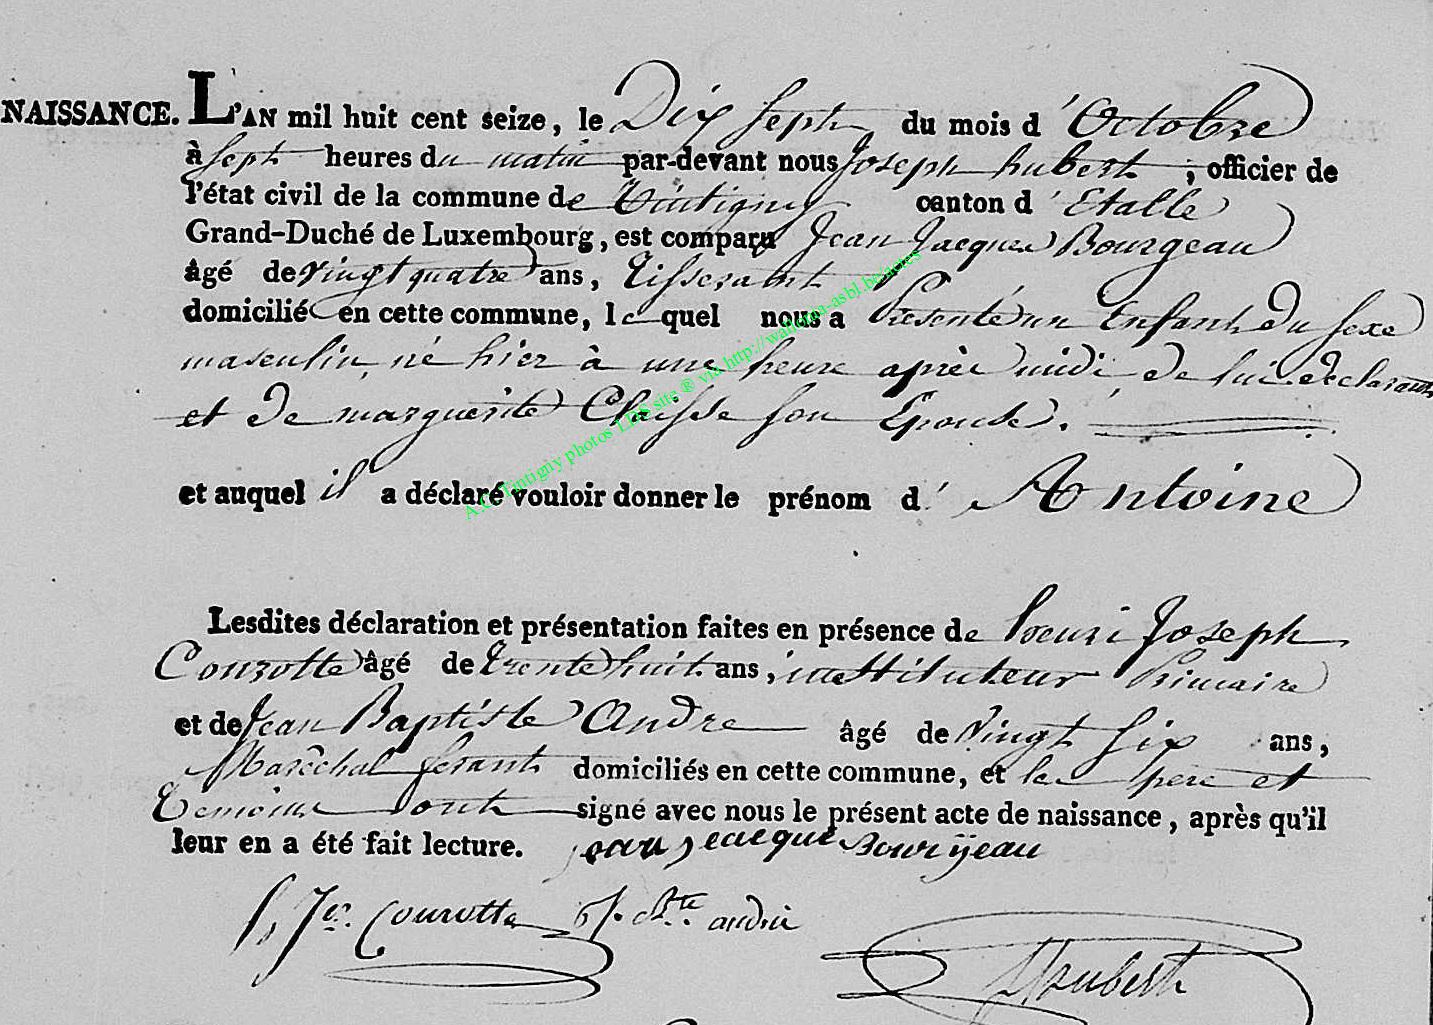 NAISSANCE. L'AN mil huit cent seize, le Dix Sept du mois d'Octobre
à Sept heures du matin par-devant nous Joseph hubert, officier de
l'état civil de la commune de Tintigny canton d'Etalle
Grand-Duché de Luxembourg, est comparu Jean Jacques Bourgeau
âgé de vingt quatre ans, Tisserant
domicilié en cette commune, lequel nous a Présenté un Enfant du sexe
masculin, né hier à une heure après midi, de lui déclarant
et de marguerite Claisse son Epouse.
et auquel il a déclaré vouloir donner le prénom d'Antoine
A.C. Tintigny photos LDS site ® via http://wallonia-asbl.be/actes
Lesdites déclaration et présentation faites en présence de henri Joseph
Courotte âgé de trente huit ans, instituteur Primaire
et de Jean Baptiste Andre âgé de Vingt Six ans,
Maréchal ferant domiciliés en cette commune, et le pere et
Temoins ont signé avec nous le présent acte de naissance, après qu'il
leur en a été fait lecture. jean jeacque Bourijeau
h. Jh. Courotte J. Bte. andré
Jhubert